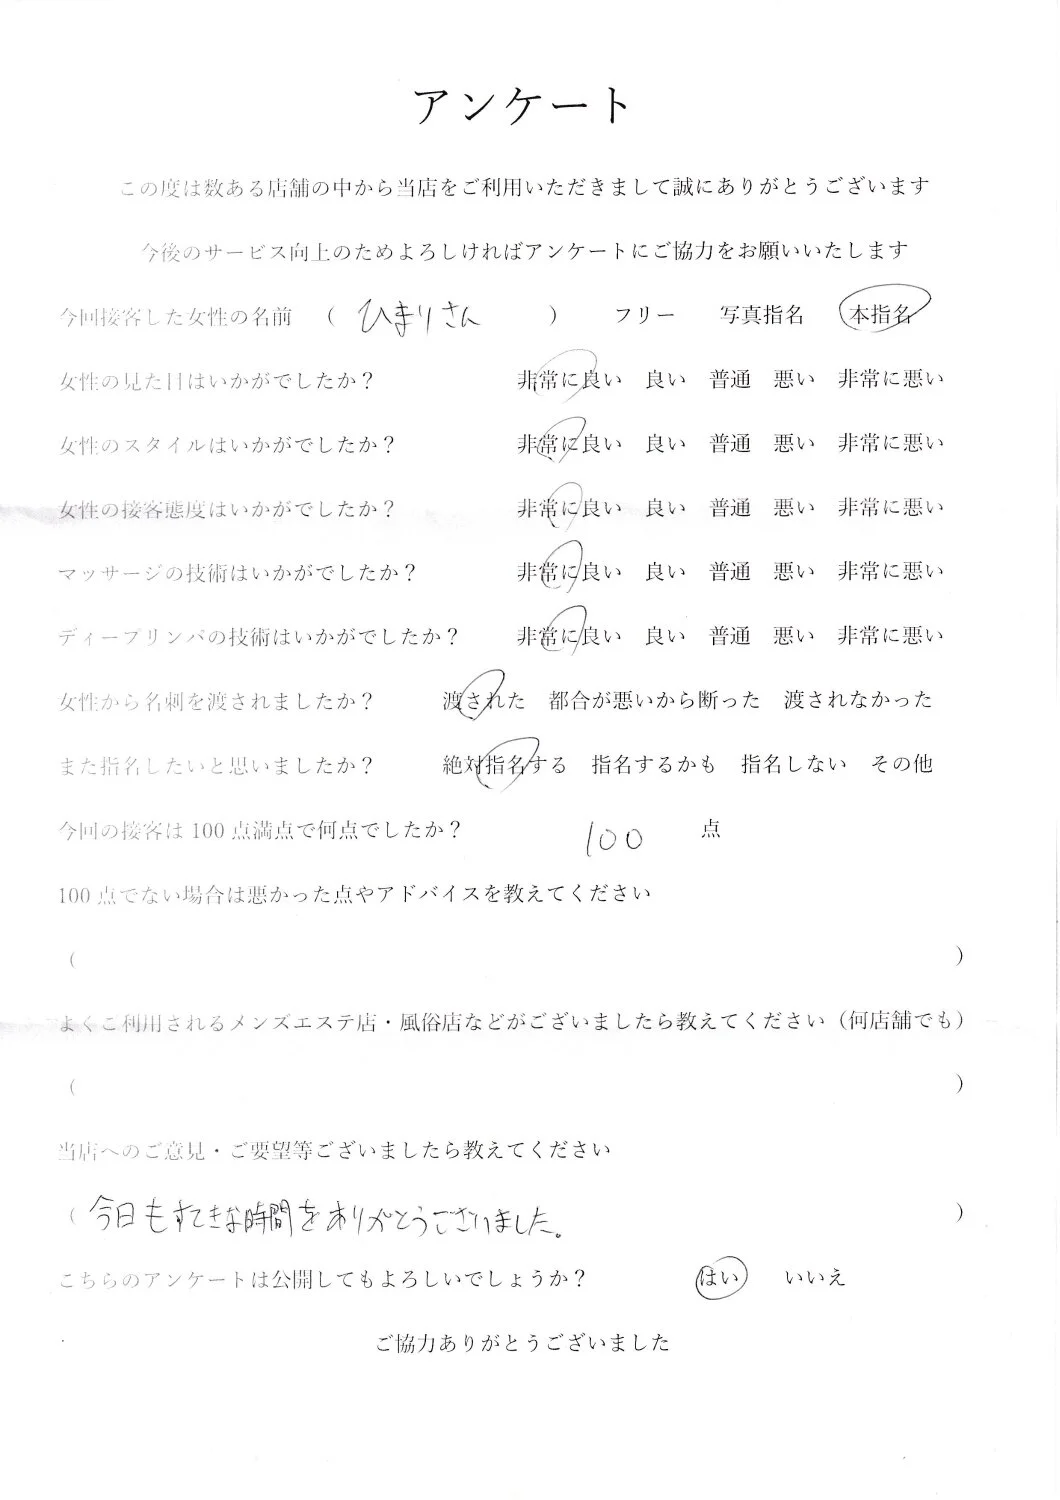 アンケート
この度は数ある店舗の中から当店をご利用いただきまして誠にありがとうございます
今後のサービス向上のためよろしければアンケートにご協力をお願いいたします
今回接客した女性の名前 （ ひまりさん ） フリー 写真指名 本指名
女性の見た目はいかがでしたか？ 非常に良い 良い 普通 悪い 非常に悪い
女性のスタイルはいかがでしたか？ 非常に良い 良い 普通 悪い 非常に悪い
女性の接客態度はいかがでしたか？ 非常に良い 良い 普通 悪い 非常に悪い
マッサージの技術はいかがでしたか？ 非常に良い 良い 普通 悪い 非常に悪い
ディープリンパの技術はいかがでしたか？ 非常に良い 良い 普通 悪い 非常に悪い
女性から名刺を渡されましたか？ 渡された 都合が悪いから断った 渡されなかった
また指名したいと思いましたか？ 絶対指名する 指名するかも 指名しない その他
今回の接客は 100 点満点で何点でしたか？ 100 点
100 点でない場合は悪かった点やアドバイスを教えてください
（ ）
よくご利用されるメンズエステ店・風俗店などがございましたら教えてください（何店舗でも）
（ ）
当店へのご意見・ご要望等ございましたら教えてください
（ 今日もすてきな時間をありがとうございました。 ）
こちらのアンケートは公開してもよろしいでしょうか？ はい いいえ
ご協力ありがとうございました